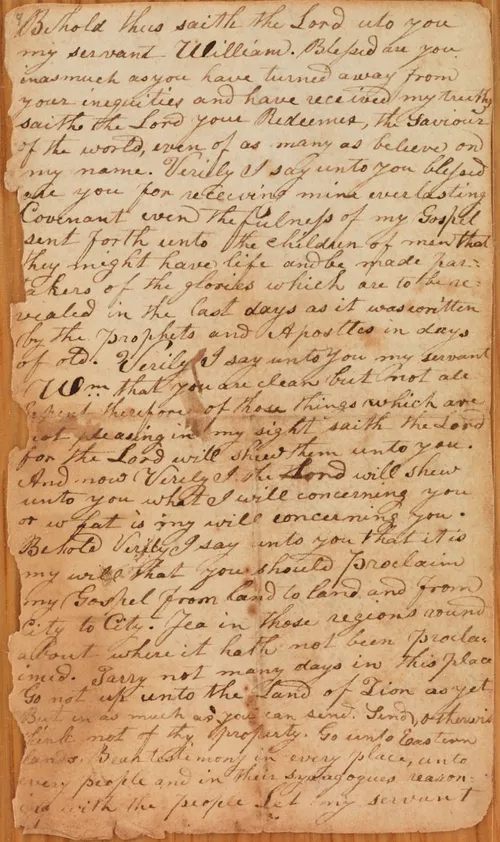 Behold thus saith the Lord uto you
my servant William. Blessed are you
inasmuch as you have turned away from
your inequities and have received my truths
saith the Lord your Redeemer, the Saviour
of the world, even of as many as believe on
my name. Verily I say unto you blessed
are you for receiving mine everlasting
Covenant even the fulness of my Gospel
sent forth unto the children of men that
they might have life and be made par-
takers of the glories which are to be re-
vealed in the last days as it was written
by the Prophets and Apostles in days
of old. Verily I say unto you my servant
Wm that you are clean but not all
Repent therefore of those things which are
not pleasing in my sight saith the Lord
for the Lord will shew them unto you.
And now Verily I the Lord will shew
unto you what I will concerning you
or what is my will concerning you.
Behold Verily I say unto you that it is
my will that you should Proclaim
my Gospel from land to land and from
City to City. Yea in those regions round
about where it hath not been Procla
imed. Tarry not many days in this place
Go not up unto the Land of Zion as yet
But in as much as you can send. Send, otherwis
think not of thy Property. Go unto Eastern
lands. Bear testimony in every place, unto
every people and in their synagogues reason-
ing with the people Let my servant